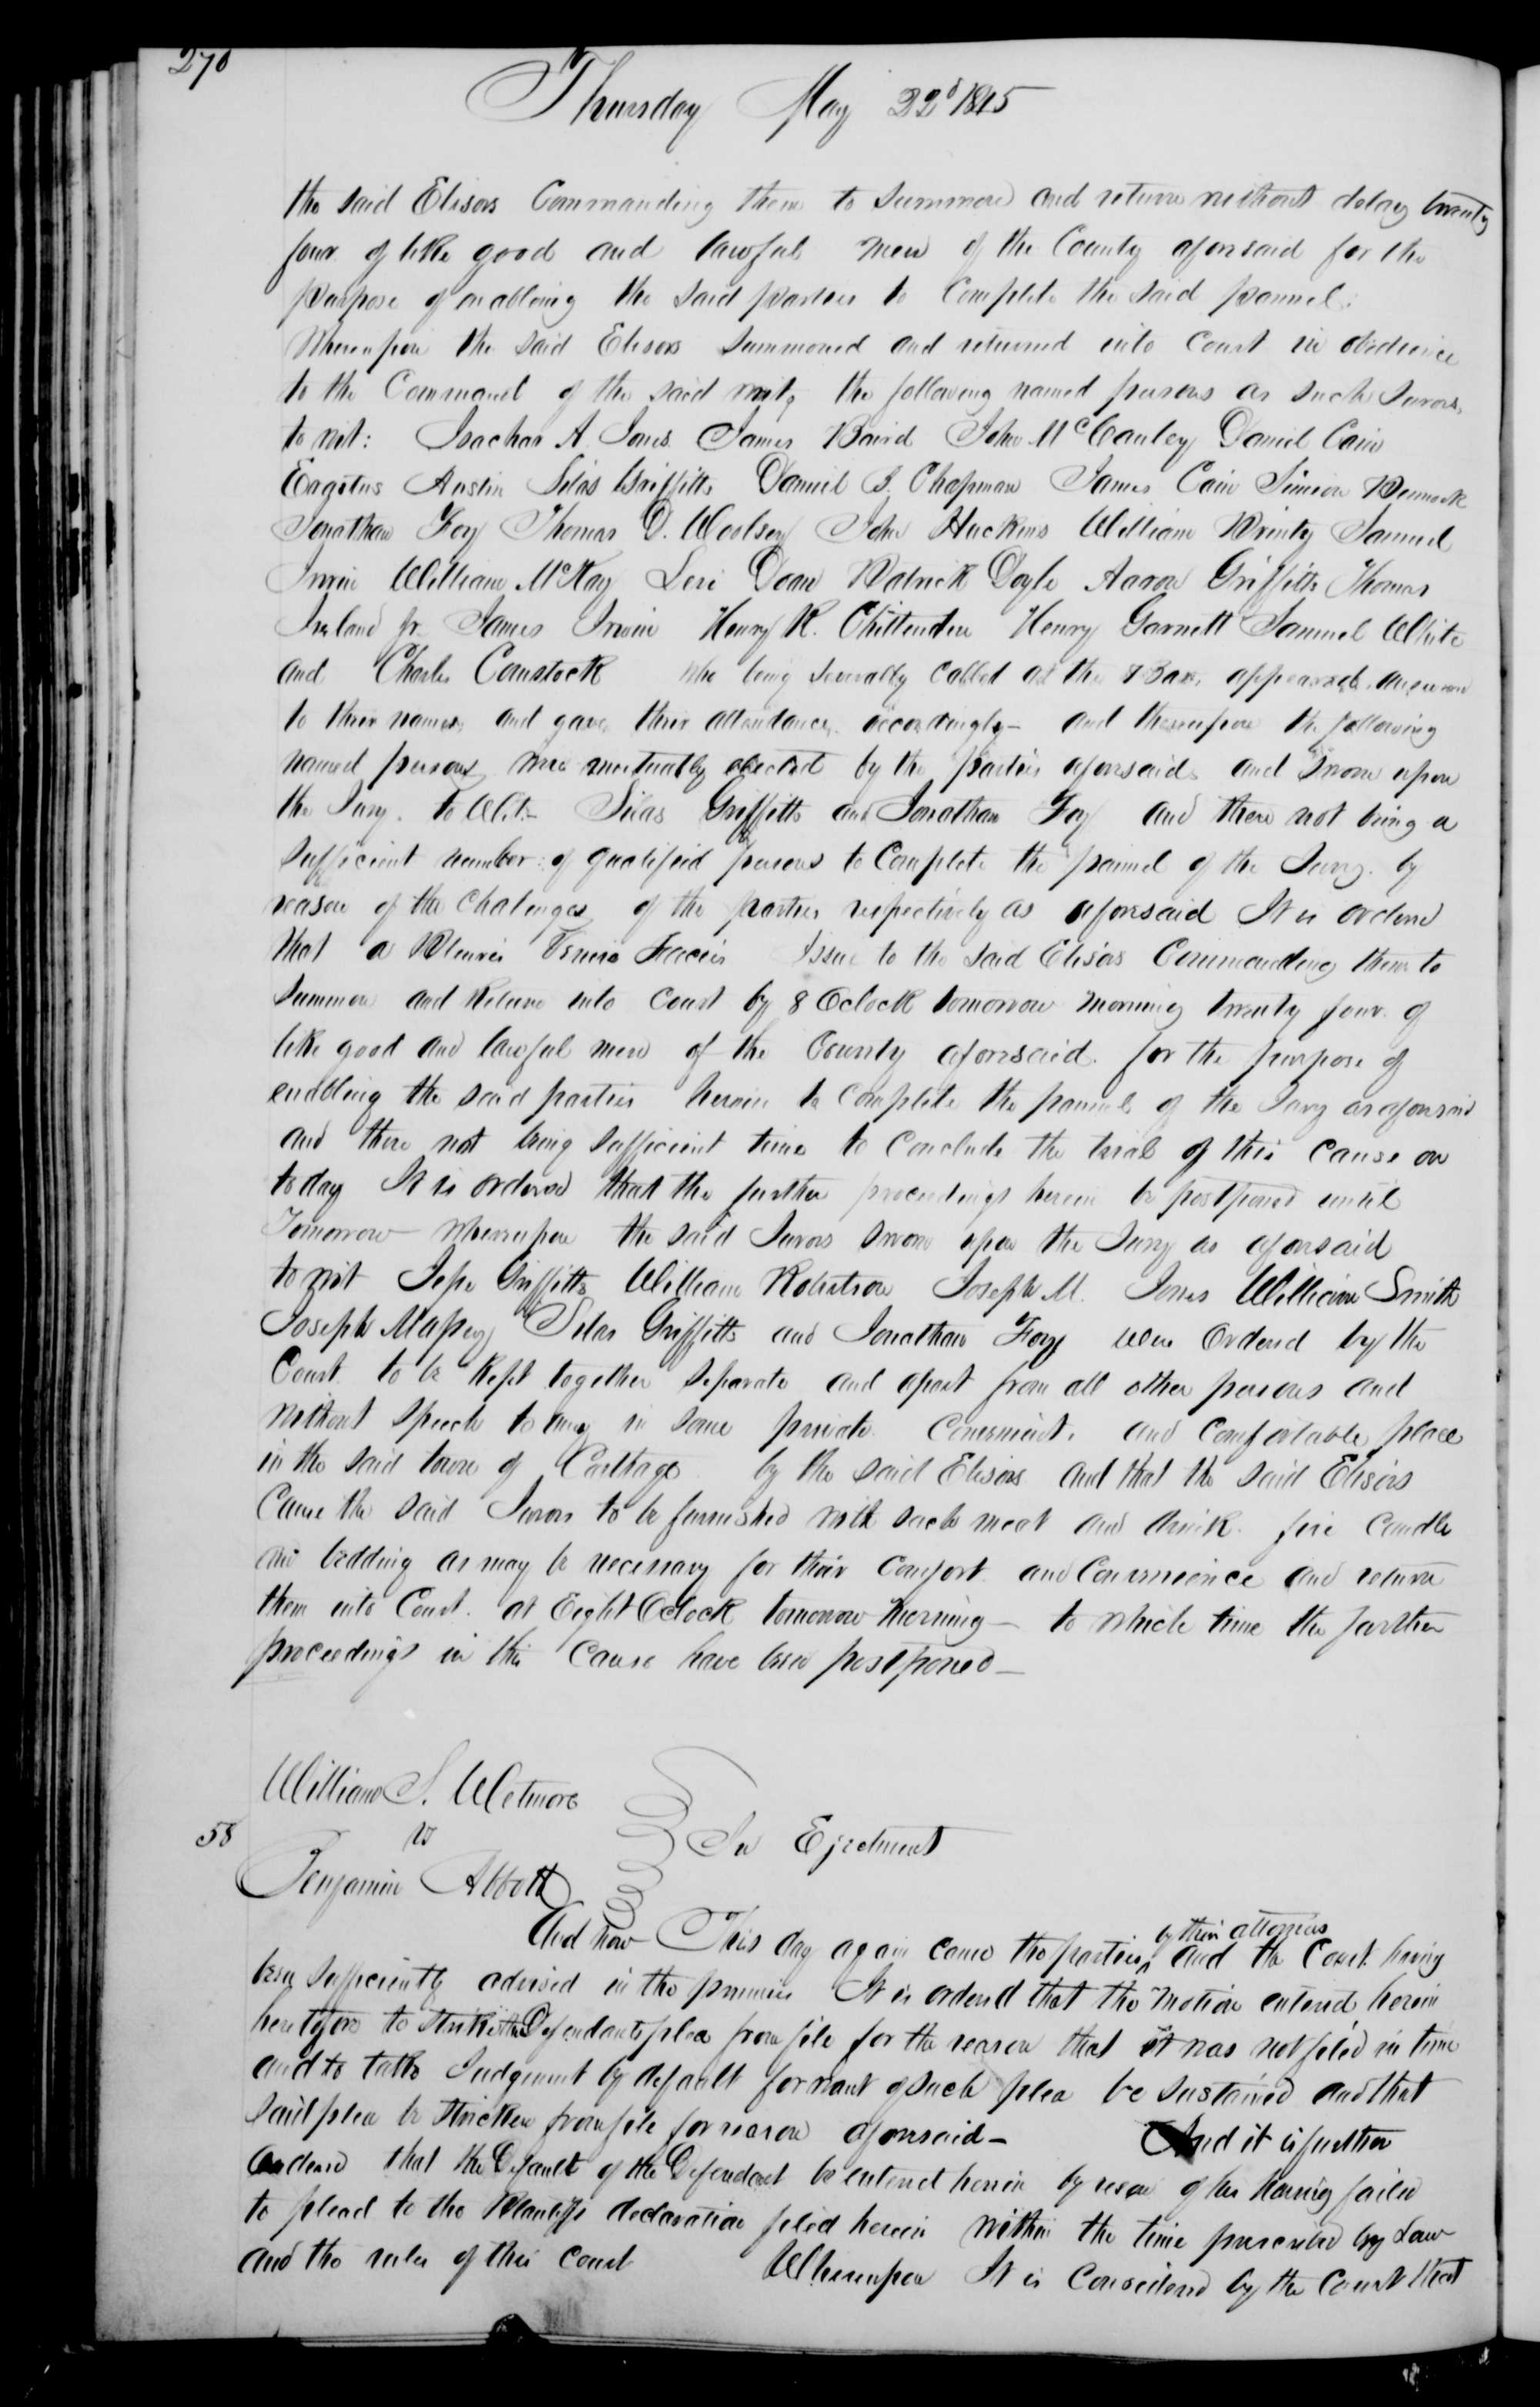 270
Thursday May 22d 1845
the said Elisors Commanding them to Summon and return without delay twenty
four of like good and lawful men of the County aforesaid for the
purpose of enabling the said parties to Complete the said pannel.
Whereupon the said Elisors summoned and returned into Court in obedience
to the Command of the said writ, the following named persons as such Jurors,
to wit: Isachar A. Jones James Baird John McCauley Daniel Cain
Erastus Austin Silas Griffitts Daniel B. Chapman James Cain Simeon
Jonathan Foy Thomas D. Woolsey John Huckins William Printy Samuel
Irwin William McKay Levi Doan Patrick Doyle Aaron Griffitts Thomas
Ireland Jr. James Irwin Henry R. Chittenden Henry Garnett Samuel White
and Charles Comstock who being severally called at the Bar, appeared answered
to their names, and gave their attendance accordingly— and thereupon the following
named persons were mutually elected by the parties aforesaid and sworn upon
the Jury. to Wit:- Silas Griffitts and Jonathan Foy and there not being a
sufficient number of qualified persons to Complete the pannel of the Jury by
reason of the Chalenges of the parties respectively as aforesaid It is ordered
that a Pluries Venire Facies Issue to the said Elisors Commanding them to
Summon and Return into Court by 8 Oclock tomorrow morning twenty four of
like good and lawful men of the County aforesaid for the purpose of
enabling the said parties herein to complete the pannel of the Jury as aforesaid
and there not being sufficient time to conclude the trial of this cause on
today It is ordered that the further proceedings herein be postponed until
Tomorrow Whereupon the said Jurors sworn upon the Jury as aforesaid
to wit Jesse Griffitts William Robertson Joseph M. Jones William Smith
Joseph Massey Silas Griffitts and Jonathan Foy were Ordered by the
Court to be Kept together separate and apart from all other persons and
without speech to any in some private Convenient, and Comfortable place
in the said town of Carthage by the said Elisors and that the said Elisors
Cause the said Jurors to be furnished with such meat and drink fire candle
and bedding as may be necessary for their comfort and Convenience and return
them into Court at Eight Oclock tomorrow morning— to which time the further
proceedings in this Cause have been postponed—
William S. Wetmore
58 vs In Ejectment
Benjamin Abbott
by their attornies
And now This day again came the parties^ and the Court having
been sufficiently advised in the premises It is ordered that the motion entered herein
heretofore to strike the Defendants plea from file for the reason that it was not filed in time
and to take Judgement by default for want of such plea be sustained and that
said plea be stricken from file for reason aforesaid— And it is further
ordered that the Default of the Defendant be entered herein by reason of his having failed
to plead to the Plantiffs declaration filed herein within the time prescribed by Law
and the rules of this court Whereupon It is Considered by the Court that